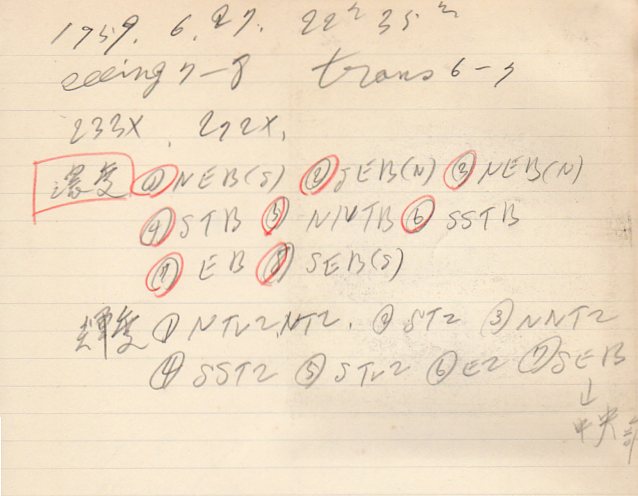 1959. 6. 27. 22h 35m
seeing 7-8 trans 6-7
233X, 272X,
濃度 ① NEB(S) ② SEB(N) ③ NEB(N)
④ STB ⑤ NNTB ⑥ SSTB
⑦ EB ⑧ SEB(S)
輝度 ① NTrZ, NTZ, ② STZ ③ NNTZ
④ SSTZ ⑤ STrZ ⑥ EZ ⑦ SEB
↓
中央